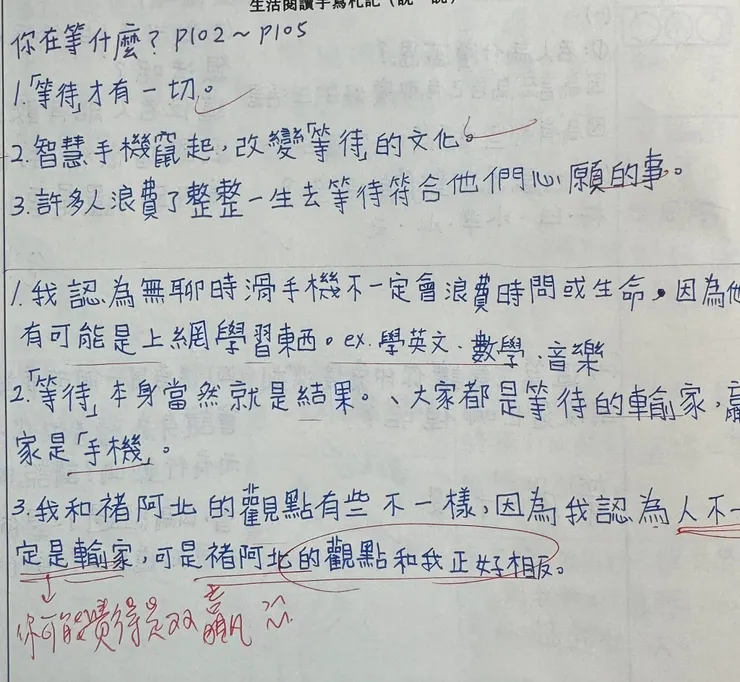 生活閱讀手寫札記（說一說）
你在等什麼？P102～P105
1.「等待」才有一切。
2.智慧手機竄起，改變「等待」的文化。
3.許多人浪費了整整一生去等待符合他們心願的事。
1.我認為無聊時滑手機不一定會浪費時間或生命，因為他
有可能是上網學習東西。ex.學英文、數學、音樂
2.「等待」本身當然就是結果。、大家都是等待的輸家，贏
家是「手機」。
3.我和褚阿北的觀點有些不一樣，因為我認為人不一
定是輸家，可是褚阿北的觀點和我正好相反。
你可能覺得是双贏